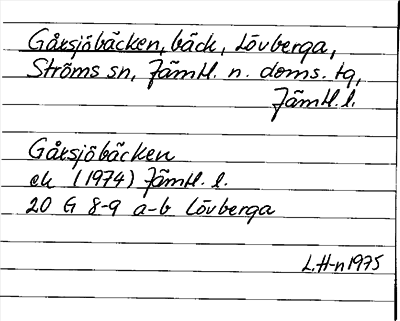 Gåxsjöbäcken, bäck, Lövberga,
Ströms sn, Jämtl. n. doms. tg,
Jämtl. l.
Gåxsjöbäcken
ek (1974) Jämtl. l.
20 G 8-9 a-b Lövberga
L.H-n 1975